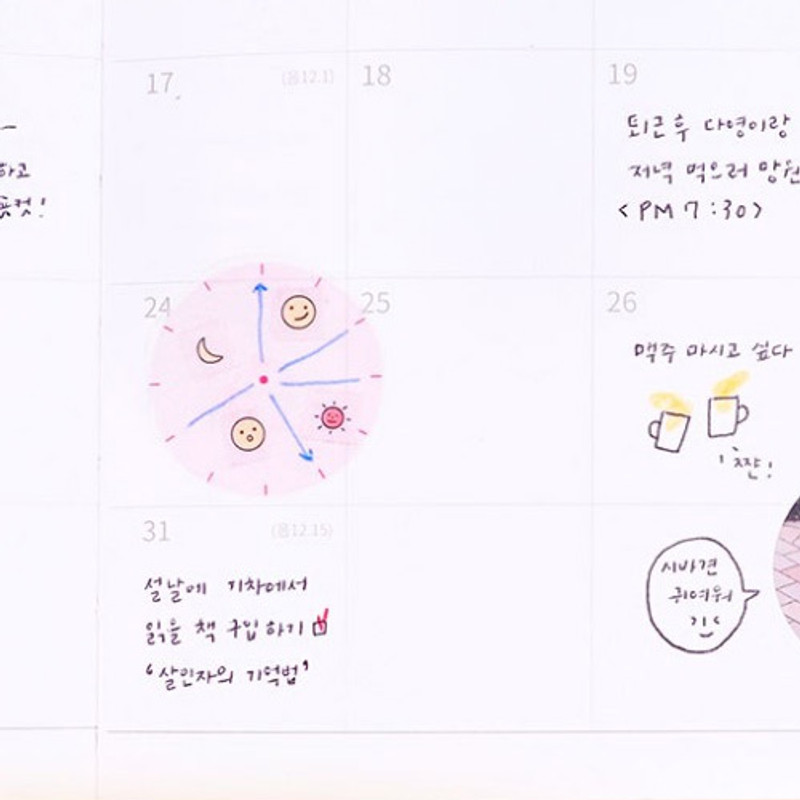 하고
17
(음12.1)
18
19
퇴근 후 다영이랑
저녁 먹으러 망원
<PM 7:30>
24
25
26
맥주 마시고 싶다
짠!
31
(음12.15)
설날에 기차에서
읽을 책 구입하기
'살인자의 기억법'
시바견
귀여워